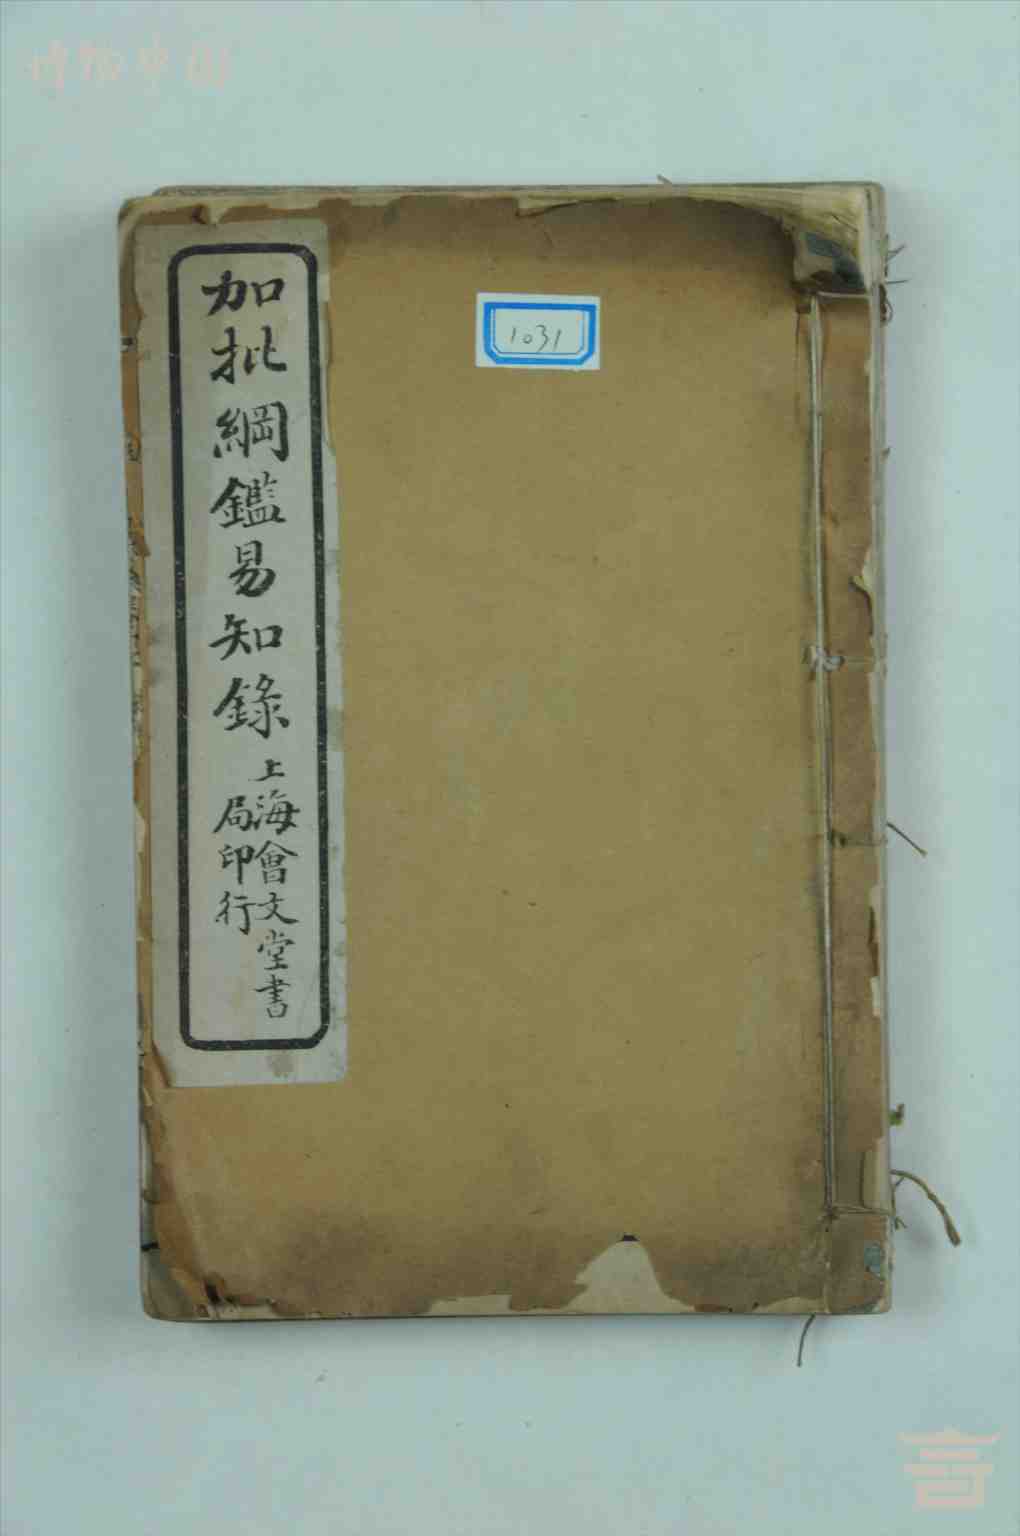 博物中国
1031
加批綱鑑易知錄
上海會文堂書
局印行